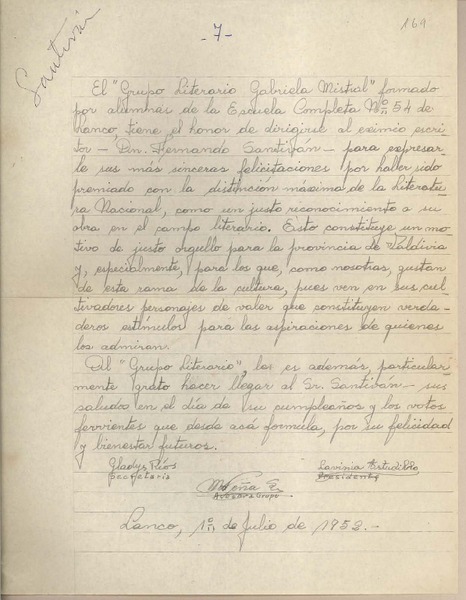 169
- 7 -
Santiván
El "Grupo Literario Gabriela Mistral" formado
por alumnas de la Escuela Completa Nº 54 de
Lanco, tiene el honor de dirigirse al eximio escri-
tor - Dn. Fernando Santiván - para expresar-
le sus más sinceras felicitaciones por haber sido
premiado con la distinción máxima de la Literatu-
ra Nacional, como un justo reconocimiento a su
obra en el campo literario. Esto constituye un mo-
tivo de justo orgullo para la provincia de Valdivia
y, especialmente, para los que, como nosotras, gustan
de esta rama de la cultura, pues ven en sus cul-
tivadores personajes de valer que constituyen verda-
deros estímulos para las aspiraciones de quienes
los admiran.
Al "Grupo Literario", les es además, particular-
mente grato hacer llegar al Sr. Santiván - sus
saludos en el día de su cumpleaños y los votos
fervientes que desde acá formula, por su felicidad
y bienestar futuros.
Gladys Ríos Lavinia Astudillo
Secretaria Presidenta
Peña
Asesora Grupo
Lanco, 1º de Julio de 1953.-